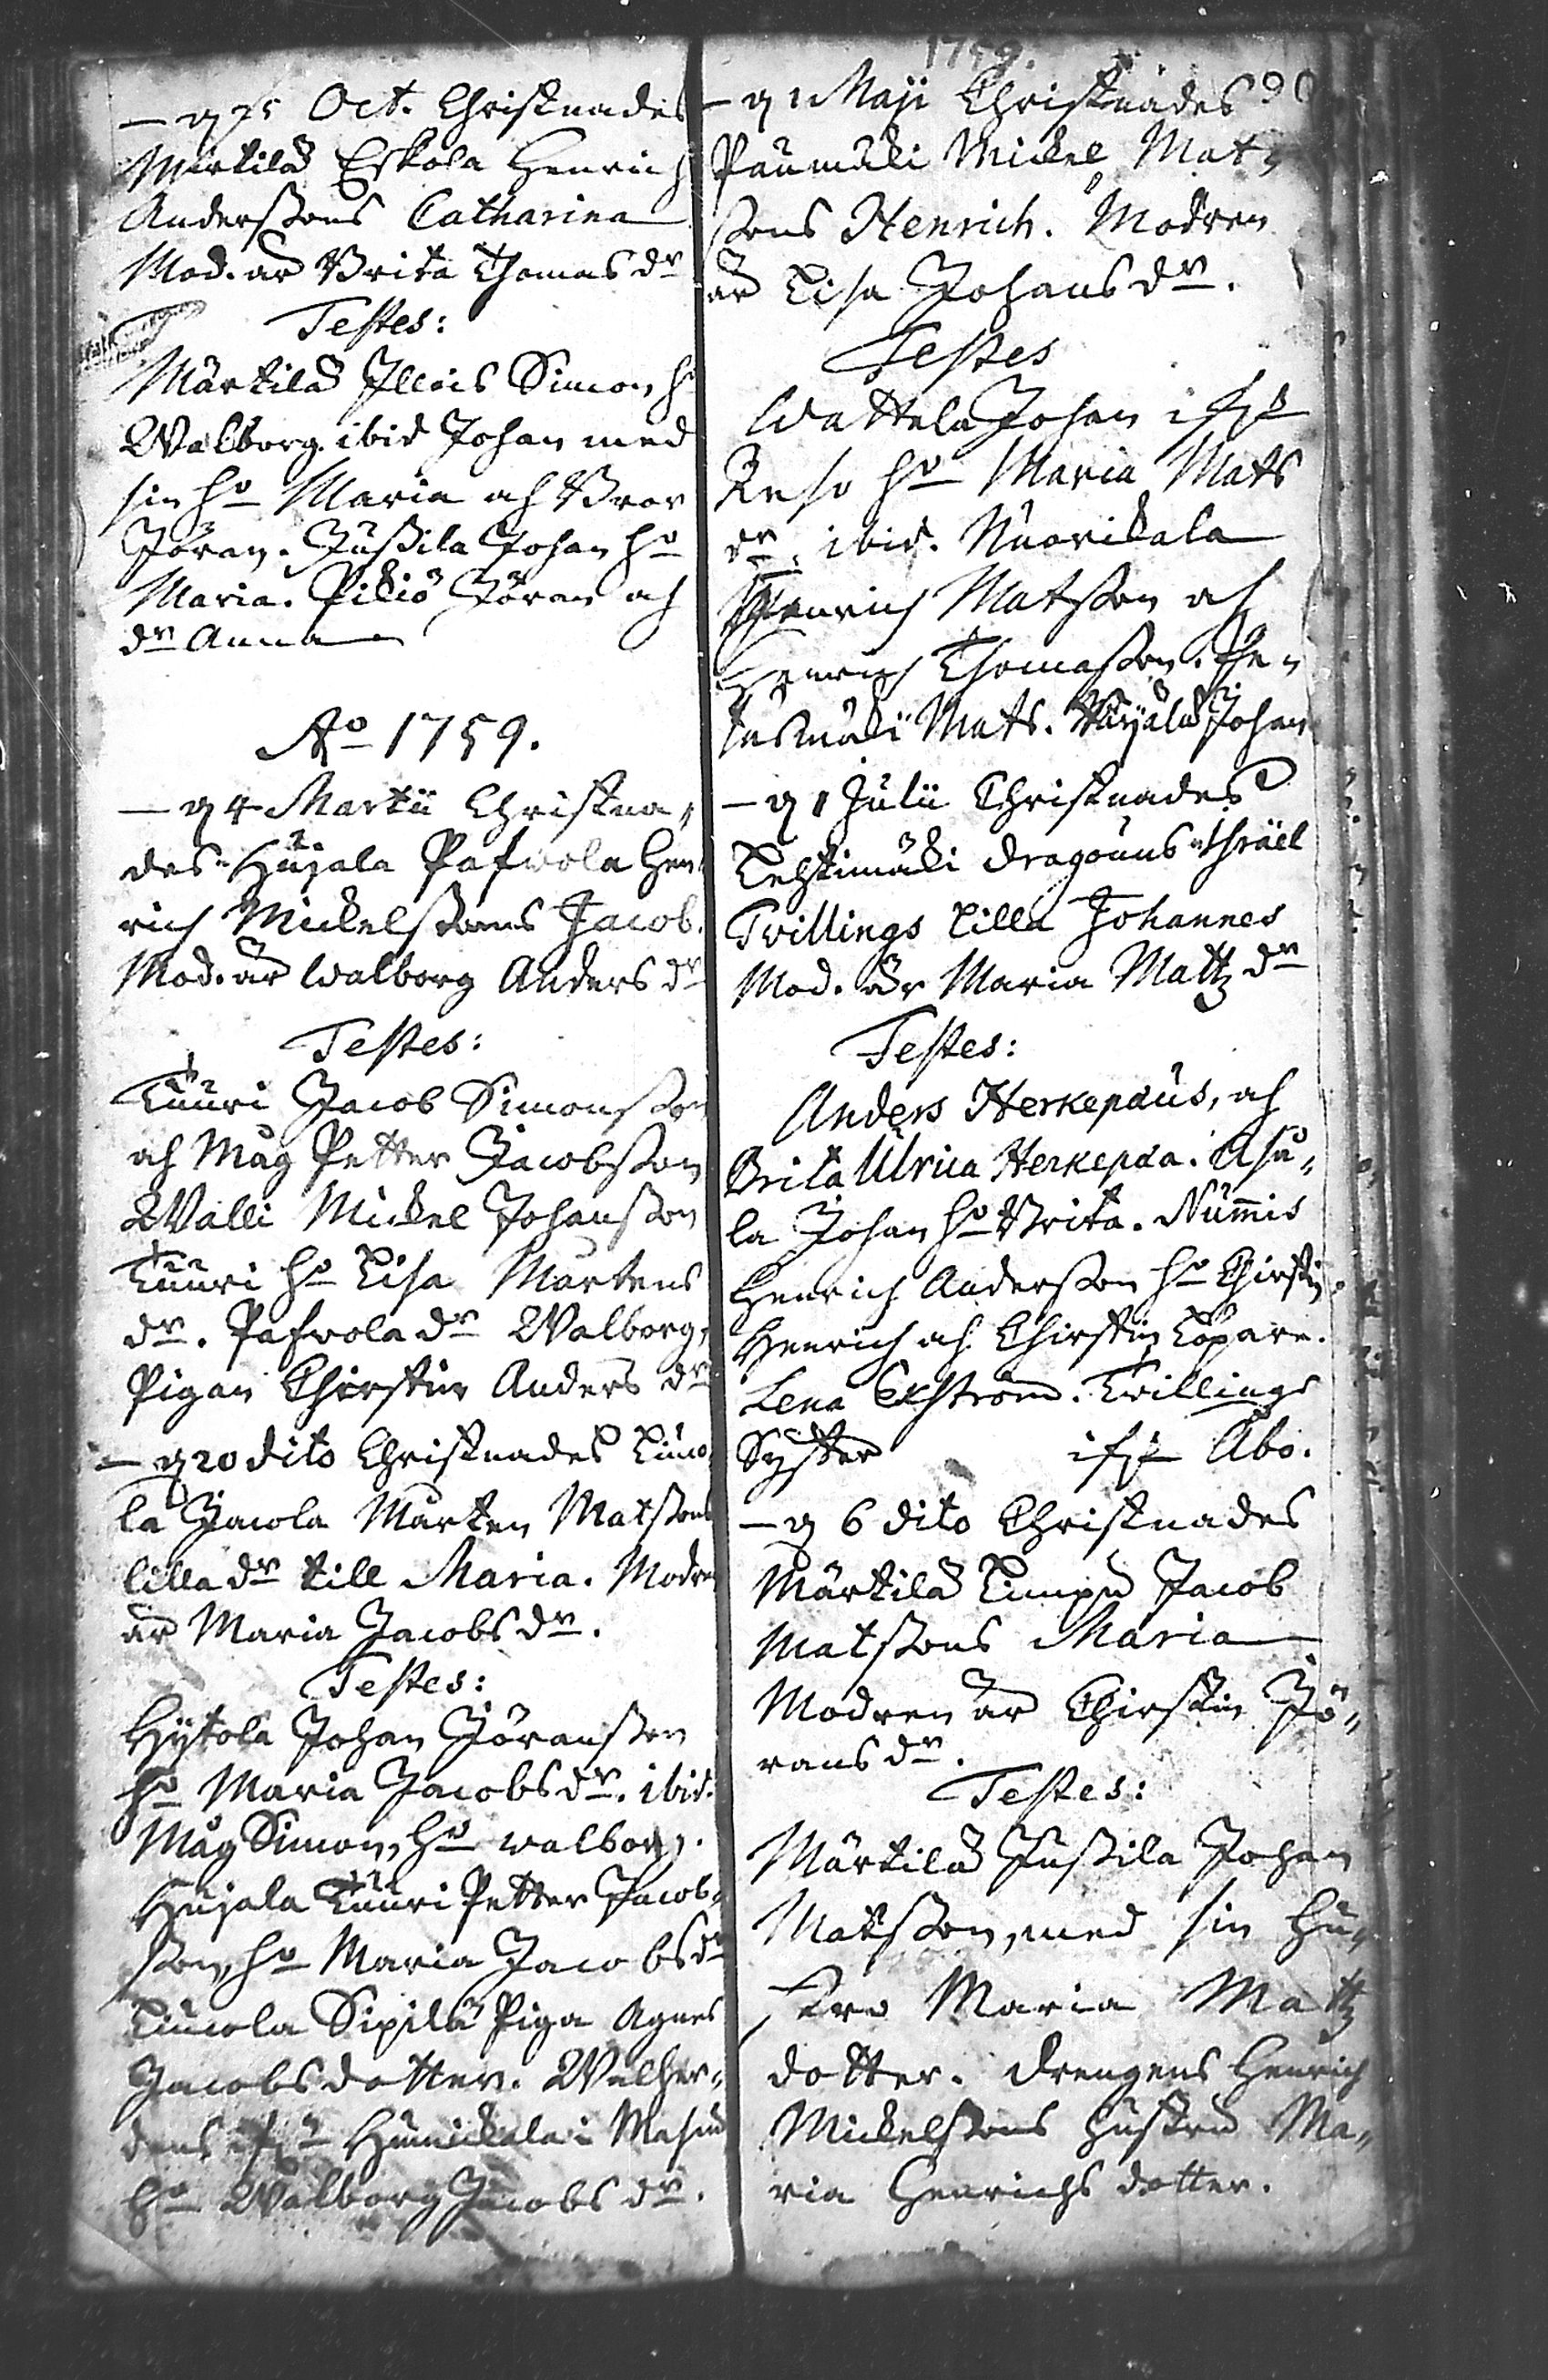 — d 25 Oct. Christnades
Mårtilä Eskola Henrich
Anderssons Catharina
Mod. är Brita Thomas dr
Testes:
Mårtilä Illois Simon ho
Walborg. ibid Johan med
sin ho Maria och Bror
Jöran. Jussila Johan ho
Maria. Pikiö Jöran och
dr Anna
Ao 1759.
— d 4 Martii Christna„
des Hujala Pafwola Hen„
rich Mickelssons Jacob.
Mod. är Walborg Anders dr
Testes:
Tuuri Jacob Simonsson
och Måg Petter Jacobsson
Walli Mickel Johansson
Tuuri ho Lisa Mårtens
dr. Pafwola dr Walborg,
Pigan Chirstin Anders dr
— d 20 dito Christnades Liuco„
la Jacola Mårten Matssons
lilla dr till Maria. Modren
är Maria Jacobs dr.
Testes:
Hytola Johan Jöransson
ho Maria Jacobs dr. ibid.
Måg Simon, ho Walborg.
Hujala Tuuri Petter Jacobs„
son, ho Maria Jacobs dr
Liucola Sipilä Piga Agnes
Jacobsdotter.
Humickala i Masku
ho Walborg Jacobs dr.
1759.
90
— d 1 Maji Christnades
Paumäki Mickel Mats
sons Henrich. Modren
är Lisa Johans dr.
Testes
Wattela Johan ifrå
Reso ho Maria Mats
dr. ibid. Nuorikala
Henrich Matsson och
Henrich Thomasson. Pen„
Mats. Johan
— d 1 Julii Christnades
Lehtimäki dragouns Isräel
Tvillings lilla Johannes
Mod. är Maria Mattz dr
Testes:
Anders Herkepæus, och
Brita Ulrica Herkepæa. Asu„
la Johan ho Brita. Nummis
Henrich Andersson ho Chirstin
Henrich och Chirstin Löpare.
Lena Ekström. Tvillings
Syster ifrå Åbo.
— d 6 dito Christnades
Mårtilä Limpu Jacob
Matssons Maria
Modren är Chirstin Jö„
rans dr.
Testes:
Mårtilä Jussila Johan
Matsson, med sin Hu„
stro Maria Mattz
dotter. Drengens Henrich
Mickelssons hustru Ma„
ria Henrichs dotter.